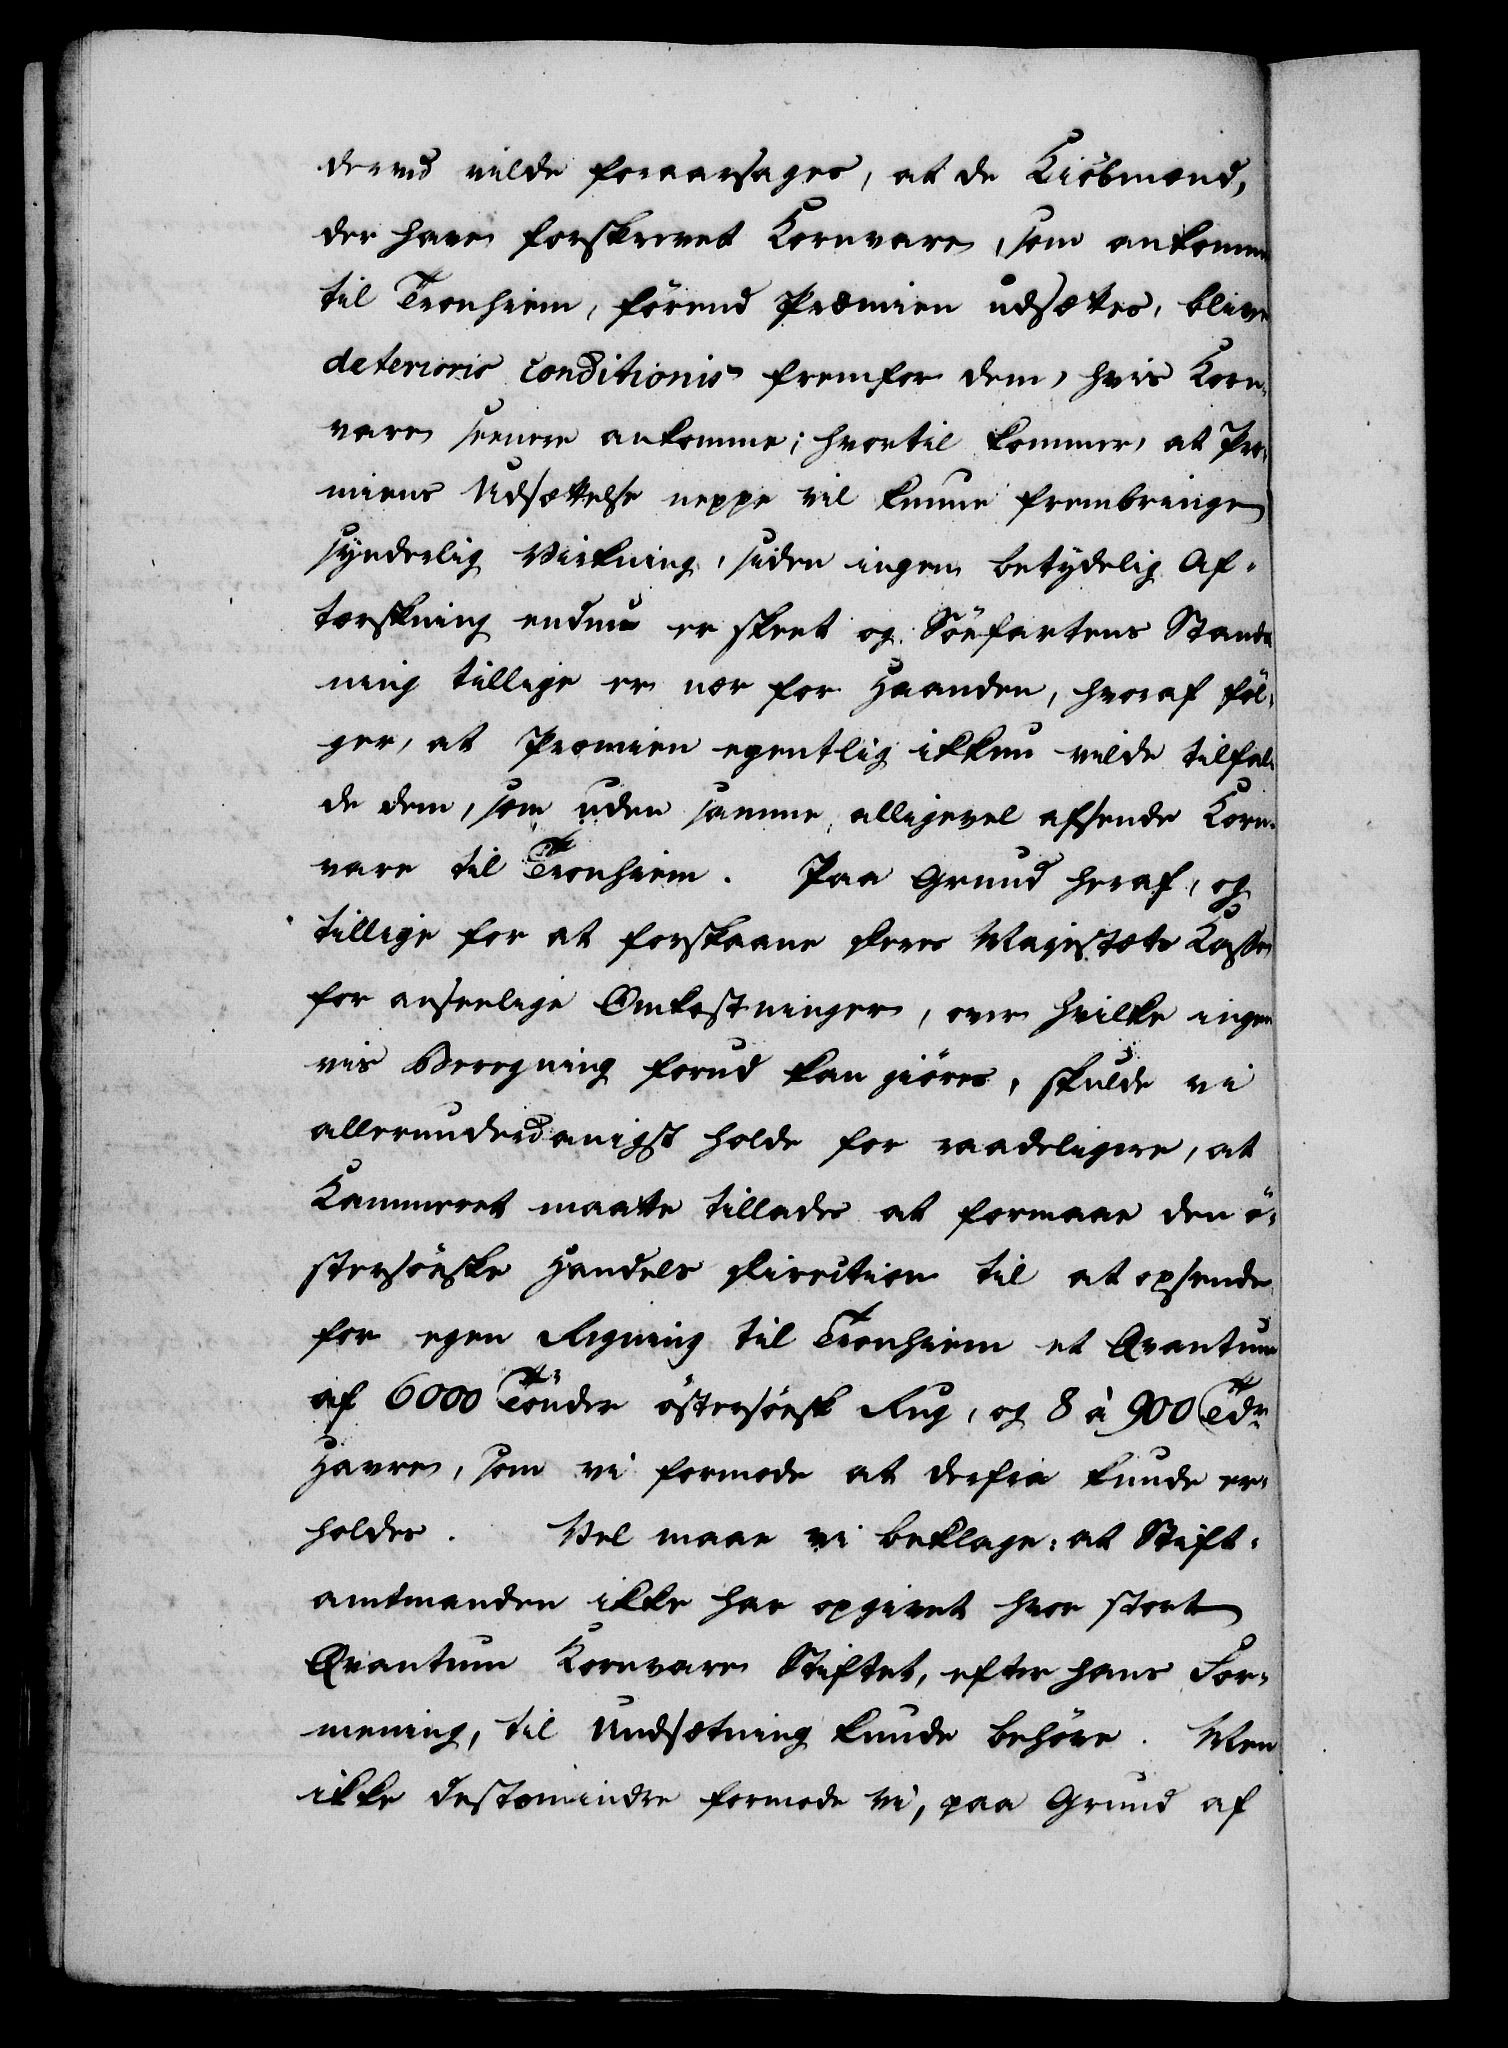 derved vilde foraarsages, at de Kiöbmænd,
der have forskrevet Kornvare, som ankomme
til Tronhiem, förend Præmien udsættes, blive
deterioris conditionis fremfor dem, hvis Korn-
vare seenere ankomme; hvortil kommer, at Præ-
miens Udsættelse neppe vil kunne frembringe
synderlig Virkning, siden ingen betydelig Af-
torskning endnu er skeet og Söefartens Stands-
ning tillige er nær for Haanden, hvoraf föl-
ger, at Præmien egentlig ikkun vilde tilfal-
de dem, som uden samme alligevel afsende Korn-
vare til Tronhiem. Paa Grund heraf, og
tillige for at forskaane Deres Majestæts Kasse
for anseelige Omkostninger, over hvilke ingen
vis Beregning forud kan giöres, skulde vi
allerunderdanigst holde for raadeligere, at
Kammeret maatte tillades at formaae den ö-
stersöeske Handels Direction til at opsende
for egen Regning til Tronhiem et Qvantum
af 6000 Tönder östersöesk Rug, og 8 à 900 Tdr
Havre, som vi formode at derfra kunde er-
holdes. Vel maae vi beklage: at Stift-
amtmanden ikke har opgivet hvor stort
Qvantum Kornvare Stiftet, efter hans For-
mening, til Undsætning kunde behöve. Men
ikke destomindre formode vi, paa Grund af